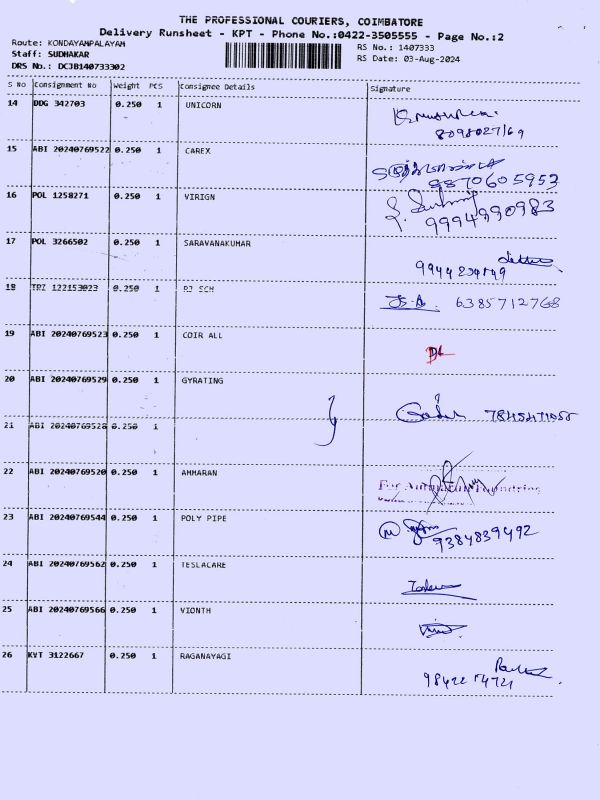 THE PROFESSIONAL COURIERS, COIMBATORE
Delivery Runsheet - KPT - Phone No.:0422-3505555 - Page No.:2
Route: KONDAYAMPALAYAM
Staff: SUDHAKAR
DRS No.: DCJB140733302
RS No.: 1407333
RS Date: 03-Aug-2024
S No Consignment No Weight PCS Consignee Details Signature
14 DDG 342703 0.250 1 UNICORN
8098027169
15 ABI 20240769522 0.250 1 CAREX
8870605953
16 POL 1258271 0.250 1 VIRIGN
9994990983
17 POL 3266502 0.250 1 SARAVANAKUMAR
18 TRZ 122153023 0.250 1 PJ SCH 6385712768
19 ABI 20240769523 0.250 1 COIR ALL
DL
20 ABI 20240769529 0.250 1 GYRATING
21 ABI 20240769528 0.250 1
22 ABI 20240769520 0.250 1 AMMARAN
For
23 ABI 20240769544 0.250 1 POLY PIPE
9384839492
24 ABI 20240769562 0.250 1 TESLACARE
25 ABI 20240769566 0.250 1 VIONTH
26 KVT 3122667 0.250 1 RAGANAYAGI